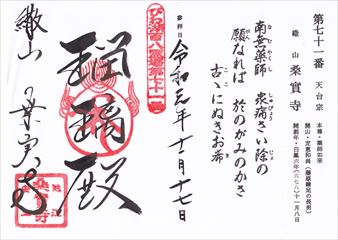 第七十一番　天台宗
繖山　桑實寺
本尊・薬師如来
開山・定恵和尚（藤原鎌足の長男）
開創年・白鳳六年（六七八）十一月八日
南無薬師　衆病さい除の
願なれば　於のがみのかさ
古ゝにぬきお希
参拝日
令和元年十一月十七日
瑠璃殿
繖山　桑実寺